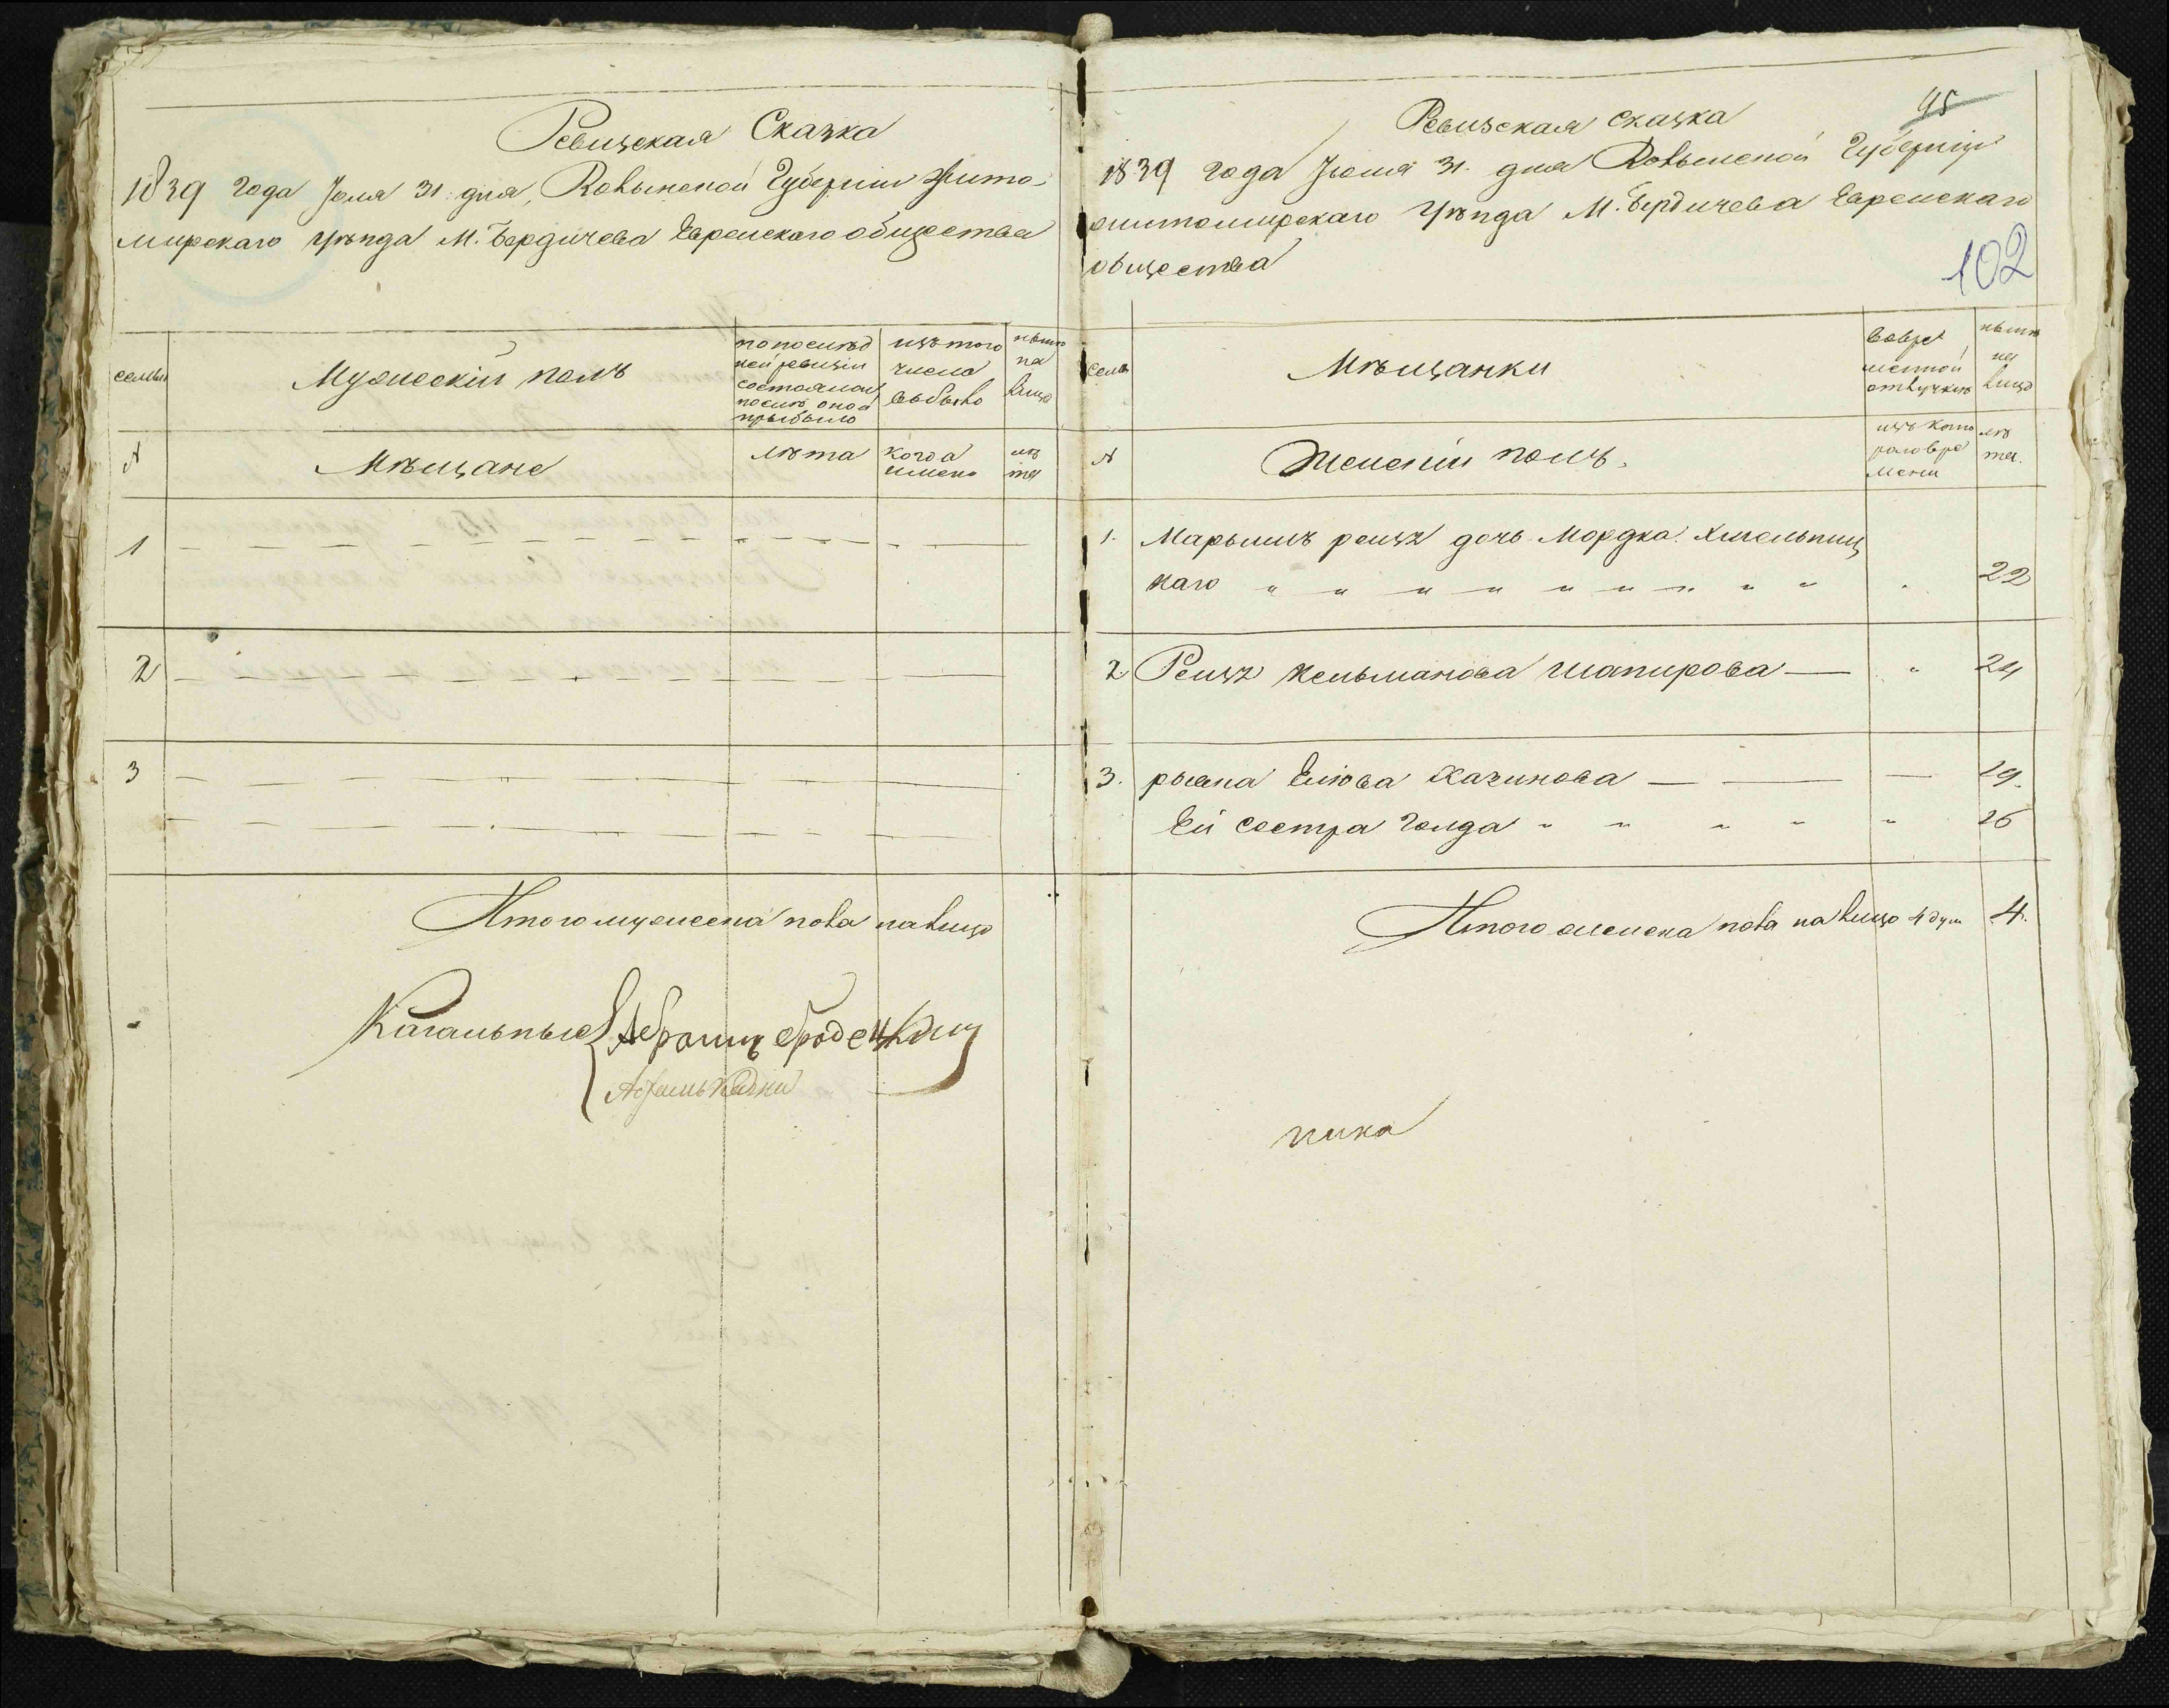 Ревизская Сказка
1839 года Июля 31 дня, Волынской Губернии Жито-
мирскаго уѣзда М. Бердичева Еврейскаго общества
семьи
Мужескій полъ
по послѣд
ней ревизіи
состояло и
послѣ оной
прыбыло
изъ того
числа
выбыло
нынѣ
на
лицо
№
Мѣщане
лѣта
когда
имено
лѣ
та
1
2
3
Итого мужеска пола на лицо
Кагальные Абрамъ Бродецкій
95
Ревизская сказка
1839 года Июля 31. дня Волынской Губерніи
житомирскаго уѣзда М. Бердичева Еврейскаго
общества
102
семьи
Мѣщанки
вовре
менной
отлучкѣ
нынѣ
на
лицо
№
Женскій полъ.
изъ кото
раго вре
мени
лѣ
та.
1. Марьямъ рейзя дочь Мордка Хмельниц
каго 22
2. Рейзя Кельманова шапирова 24
3. рывка Еліова Хачинова 19.
Ей сестра голда 16
Итого женска пола на лицо 4 душ 4.